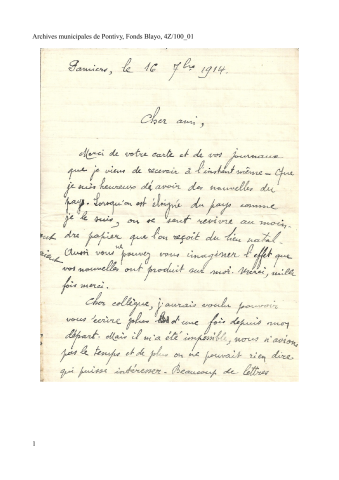 Archives municipales de Pontivy, Fonds Blayo, 4Z/100_01
Pamiers, le 16 7bre 1914.
Cher ami,
Merci de votre carte et de vos journaux
que je viens de recevoir à l'instant même - Que
je suis heureux d'avoir des nouvelles du
pays. Lorsqu'on est éloigné du pays comme
je le suis, on se sent revivre au moin-
dre papier que l'on reçoit du lieu natal.
Aussi vous ne pouvez vous imaginer l'effet que
vos nouvelles ont produit sur moi. Merci, mille
fois merci.
Cher collègue, j'aurais voulu pouvoir
vous écrire plus d'une fois depuis mon
départ. Mais il m'a été impossible, nous n'avions
pas le temps et de plus on ne pouvait rien dire
qui puisse intéresser - Beaucoup de lettres
1